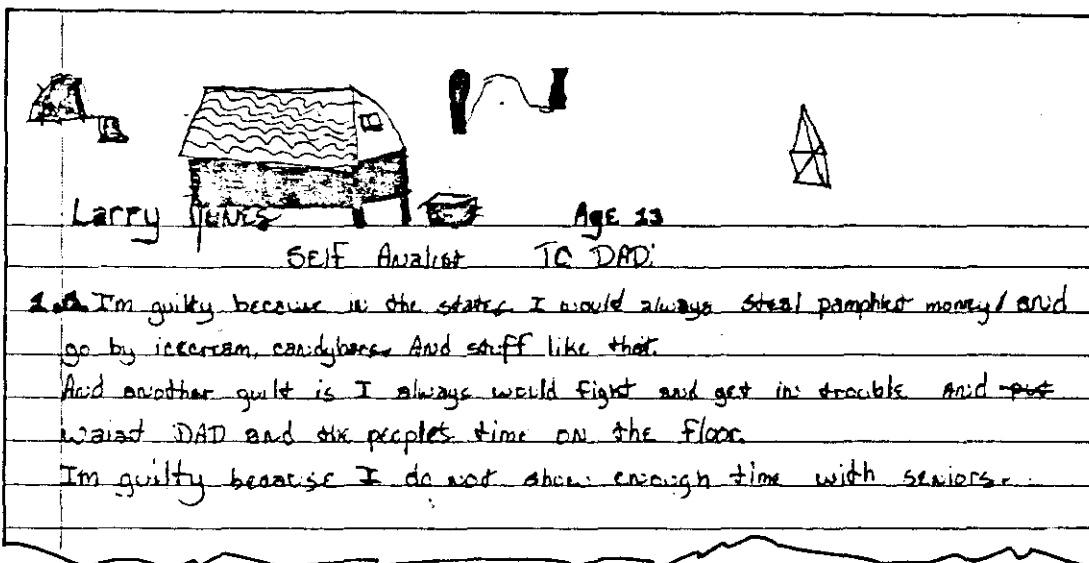 Larry Nunes Age 13
SElF Analist TO DAD:
I'm guilty because in the states I would always steal pamphlet money/ and
go by icecream, candybars. And stuff like that.
And another guilt is I always would fight and get in trouble and put
waist DAD and the people's time on the floor.
Im guilty because I do not show enough time with seniors.